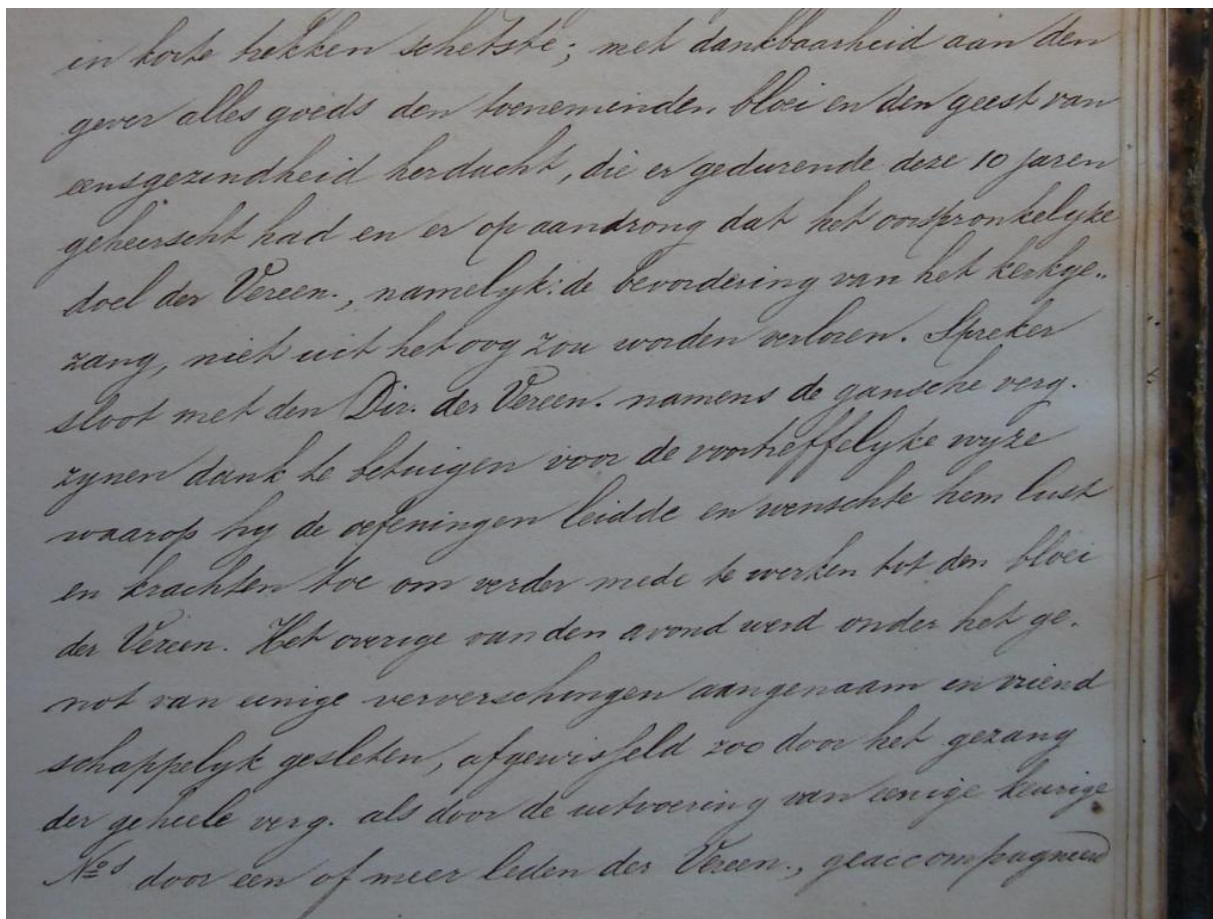 in korte trekken schetste; met dankbaarheid aan den
gever alles goeds den toenemenden bloei en den geest van
eensgezindheid herdacht, die er gedurende deze 10 jaren
geheerscht had en er op aandrong dat het oorspronkelyke
doel der Vereen., namelyk: de bevordering van het kerkge-
zang, niet uit het oog zou worden verloren. Spreker
sloot met den Dir. der Vereen. namens de gansche verg.
zynen dank te betuigen voor de voortreffelyke wyze
waarop hy de oefeningen leidde en wenschte hem lust
en krachten toe om verder mede te werken tot den bloei
der Vereen. Het overige van den avond werd onder het ge-
not van eenige ververschingen aangenaam en vriend
schappelyk gesleten, afgewisseld zoo door het gezang
der geheele verg. als door de uitvoering van eenige keurige
Nos door een of meer leden der Vereen., geaccompagneerd